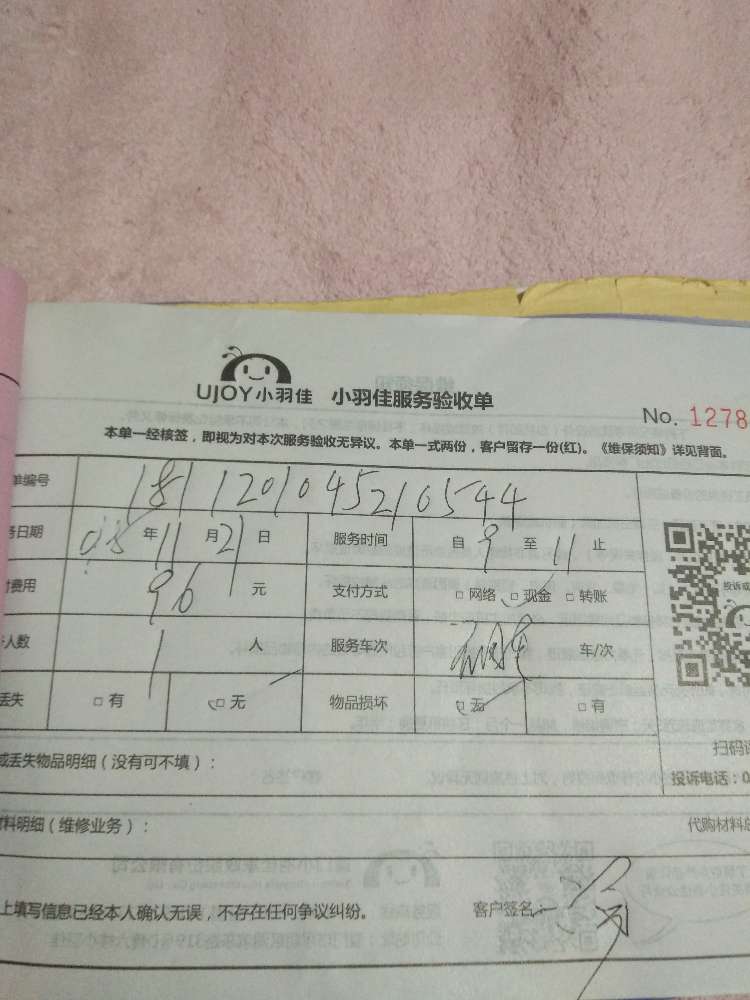 UJOY小羽佳 小羽佳服务验收单
No. 1278
本单一经核签，即视为对本次服务验收无异议。本单一式两份，客户留存一份(红)。《维保须知》详见背面。
单编号 1811201045210544
务日期 年 11 月 21 日 服务时间 自 9 至 11 止
费用 96 元 支付方式 □网络 □现金 □转账
人数 1 人 服务车次 车/次
丢失 □有 □无 物品损坏 □无 □有
投诉或
扫码
或丢失物品明细（没有可不填）：
投诉电话：0
材料明细（维修业务）：
代购材料总
上填写信息已经本人确认无误，不存在任何争议纠纷。 客户签名：